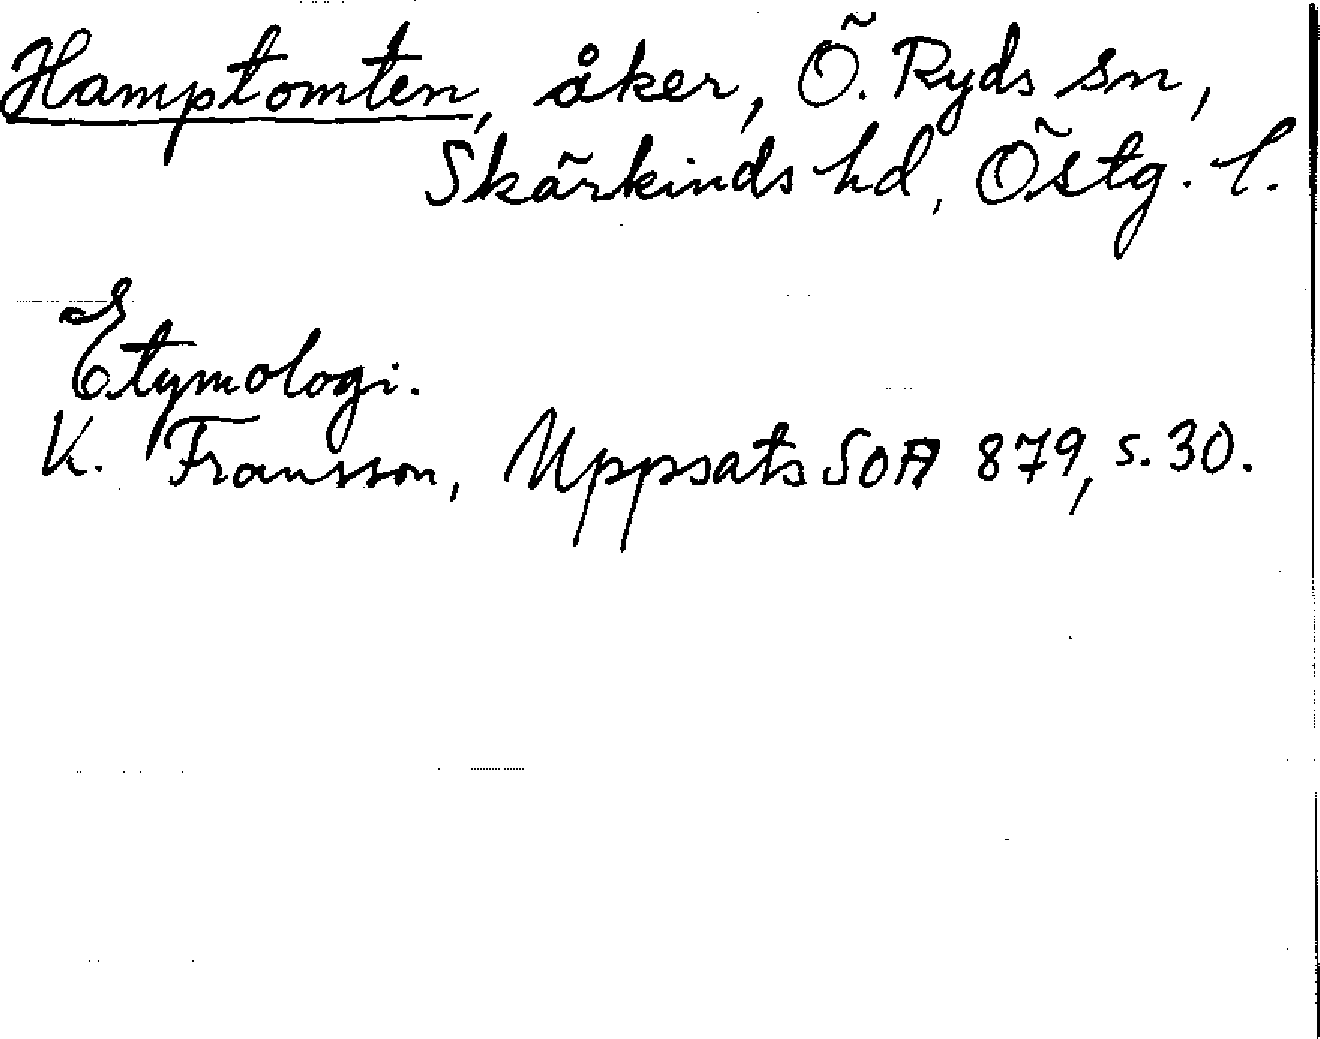 Hamptomten, åker, Ö. Ryds sn,
Skärkinds hd, Östg. l.
Etymologi.
K. Fransson, Uppsats SOA 879, s. 30.